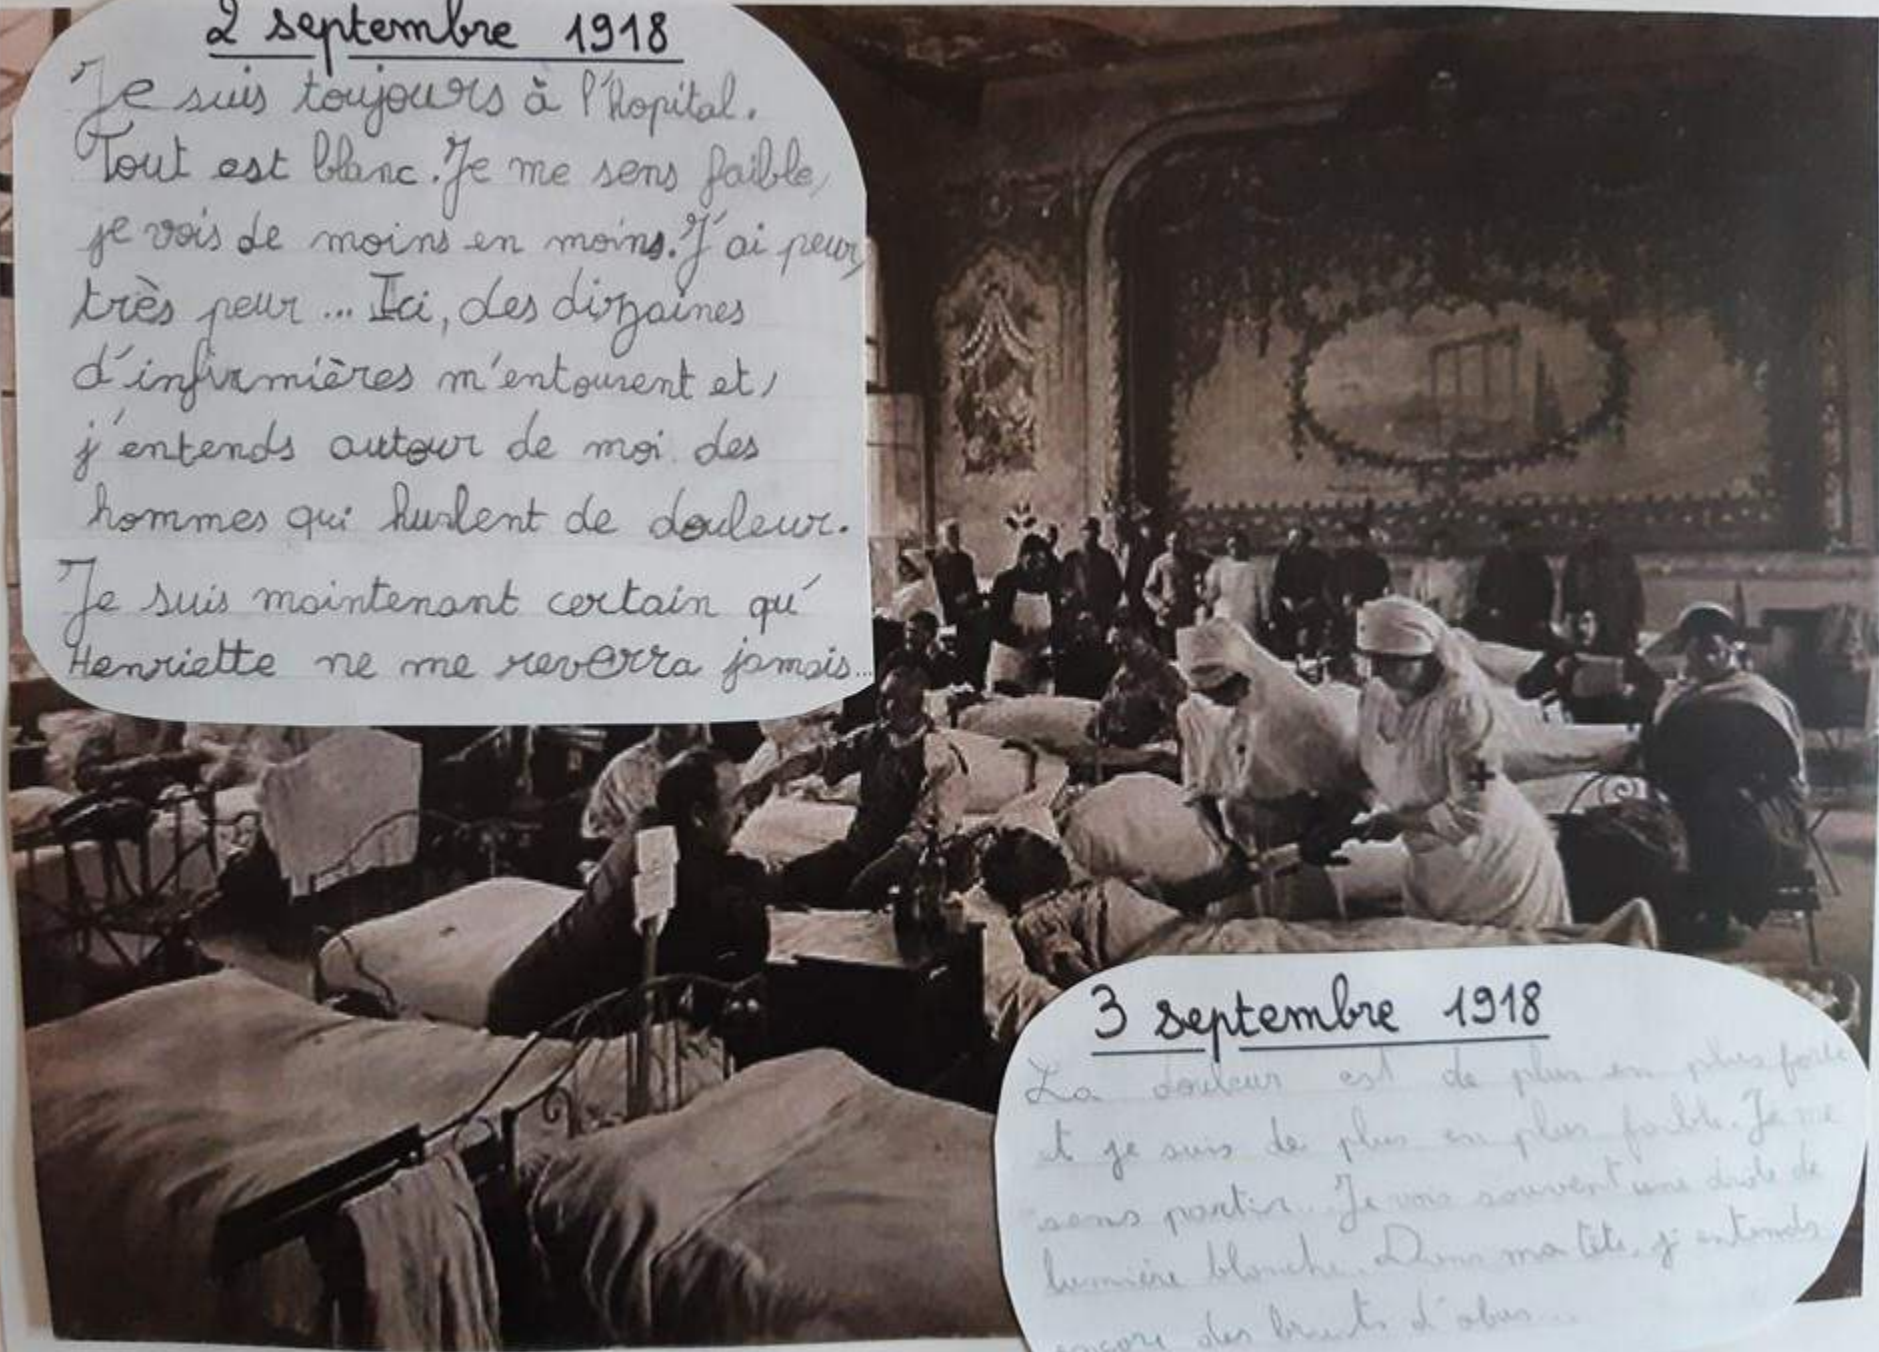 2 septembre 1918
Je suis toujours à l'hopital.
Tout est blanc. Je me sens faible,
je vois de moins en moins. J'ai peur,
très peur... Ici, des dizaines
d'infirmières m'entourent et,
j'entends autour de moi des
hommes qui hurlent de douleur.
Je suis maintenant certain qu'
Henriette ne me reverra jamais...
3 septembre 1918
La douleur est de plus en plus forte
et je suis de plus en plus faible. Je me
sens partir... Je vois souvent une drôle de
lumière blanche. Dans ma tête, j'entends
encore des bruits d'obus...